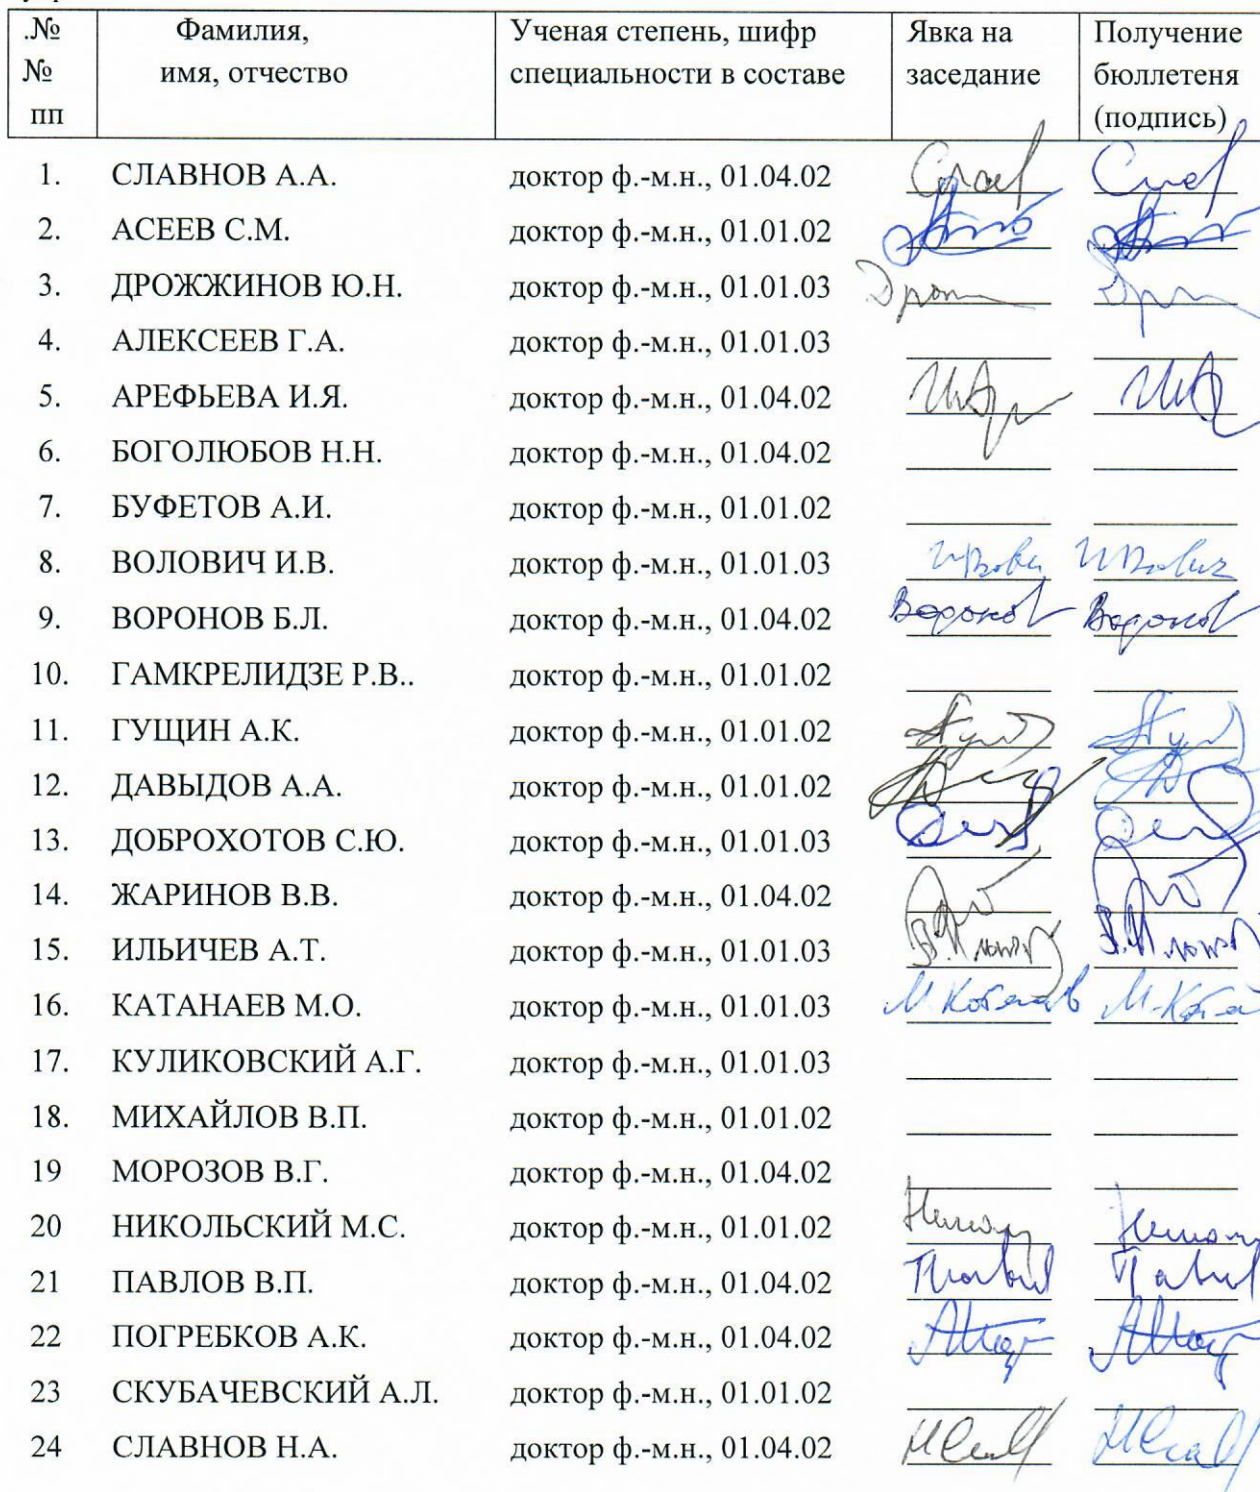 .№ Фамилия, Ученая степень, шифр Явка на Получение
№ имя, отчество специальности в составе заседание бюллетеня
пп (подпись)
1. СЛАВНОВ А.А. доктор ф.-м.н., 01.04.02
2. АСЕЕВ С.М. доктор ф.-м.н., 01.01.02
3. ДРОЖЖИНОВ Ю.Н. доктор ф.-м.н., 01.01.03
4. АЛЕКСЕЕВ Г.А. доктор ф.-м.н., 01.01.03
5. АРЕФЬЕВА И.Я. доктор ф.-м.н., 01.04.02
6. БОГОЛЮБОВ Н.Н. доктор ф.-м.н., 01.04.02
7. БУФЕТОВ А.И. доктор ф.-м.н., 01.01.02
8. ВОЛОВИЧ И.В. доктор ф.-м.н., 01.01.03
9. ВОРОНОВ Б.Л. доктор ф.-м.н., 01.04.02 Воронов Воронов
10. ГАМКРЕЛИДЗЕ Р.В.. доктор ф.-м.н., 01.01.02
11. ГУЩИН А.К. доктор ф.-м.н., 01.01.02
12. ДАВЫДОВ А.А. доктор ф.-м.н., 01.01.02
13. ДОБРОХОТОВ С.Ю. доктор ф.-м.н., 01.01.03
14. ЖАРИНОВ В.В. доктор ф.-м.н., 01.04.02
15. ИЛЬИЧЕВ А.Т. доктор ф.-м.н., 01.01.03
16. КАТАНАЕВ М.О. доктор ф.-м.н., 01.01.03
17. КУЛИКОВСКИЙ А.Г. доктор ф.-м.н., 01.01.03
18. МИХАЙЛОВ В.П. доктор ф.-м.н., 01.01.02
19 МОРОЗОВ В.Г. доктор ф.-м.н., 01.04.02
20 НИКОЛЬСКИЙ М.С. доктор ф.-м.н., 01.01.02
21 ПАВЛОВ В.П. доктор ф.-м.н., 01.04.02
22 ПОГРЕБКОВ А.К. доктор ф.-м.н., 01.04.02
23 СКУБАЧЕВСКИЙ А.Л. доктор ф.-м.н., 01.01.02
24 СЛАВНОВ Н.А. доктор ф.-м.н., 01.04.02